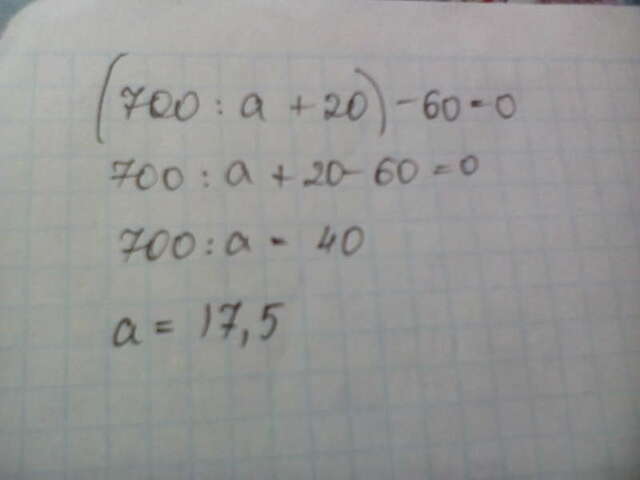 (700 : a + 20) - 60 = 0
700 : a + 20 - 60 = 0
700 : a = 40
a = 17,5